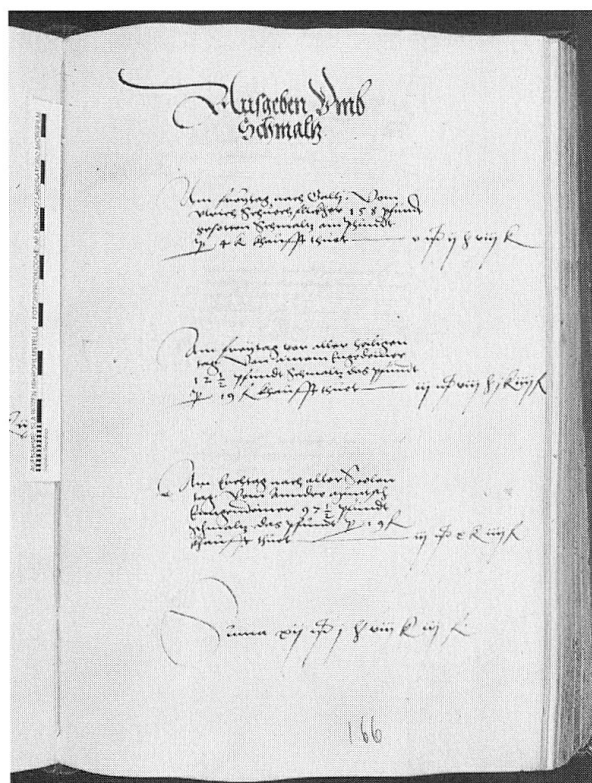 Ausgeben Vmb
Schmaltz
Am Freytag nach Galli. Vom
Vlrich 158 pfundt
gesotten Schmaltz ain pfundt
p 4 k khaufft thuet v ij viij k
Am Freytag vor aller heiligen
tag Von ainem Engedeiner
12 1/2 pfundt Schmaltz das pfundt
p 19 f khaufft thuet iij viij k iiij f
Am Erchtag nach aller Seelen
tag Vom
Enngendeiner 97 1/2 pfundt
Schmaltz das pfundt p 19 f
khaufft thuet iij x k iiij f
Suma xij j viij k iij f
166